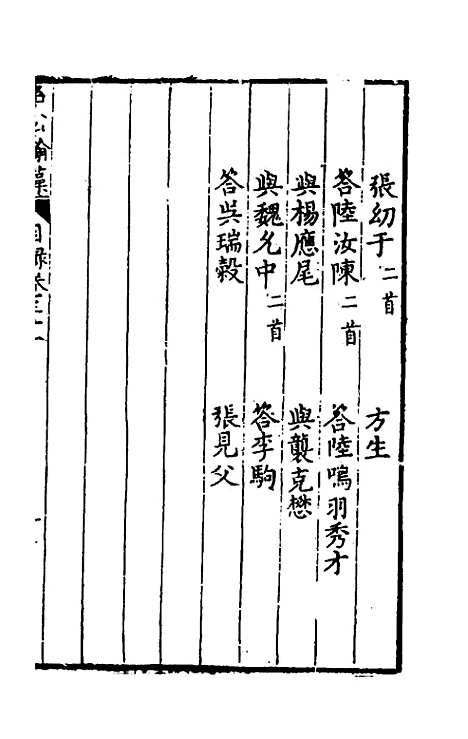 張幼于二首 方生
答陸汝陳二首 答陸鳴羽秀才
與楊應尾 與龔克懋
與魏允中二首 答李駒
答吳瑞穀 張見父